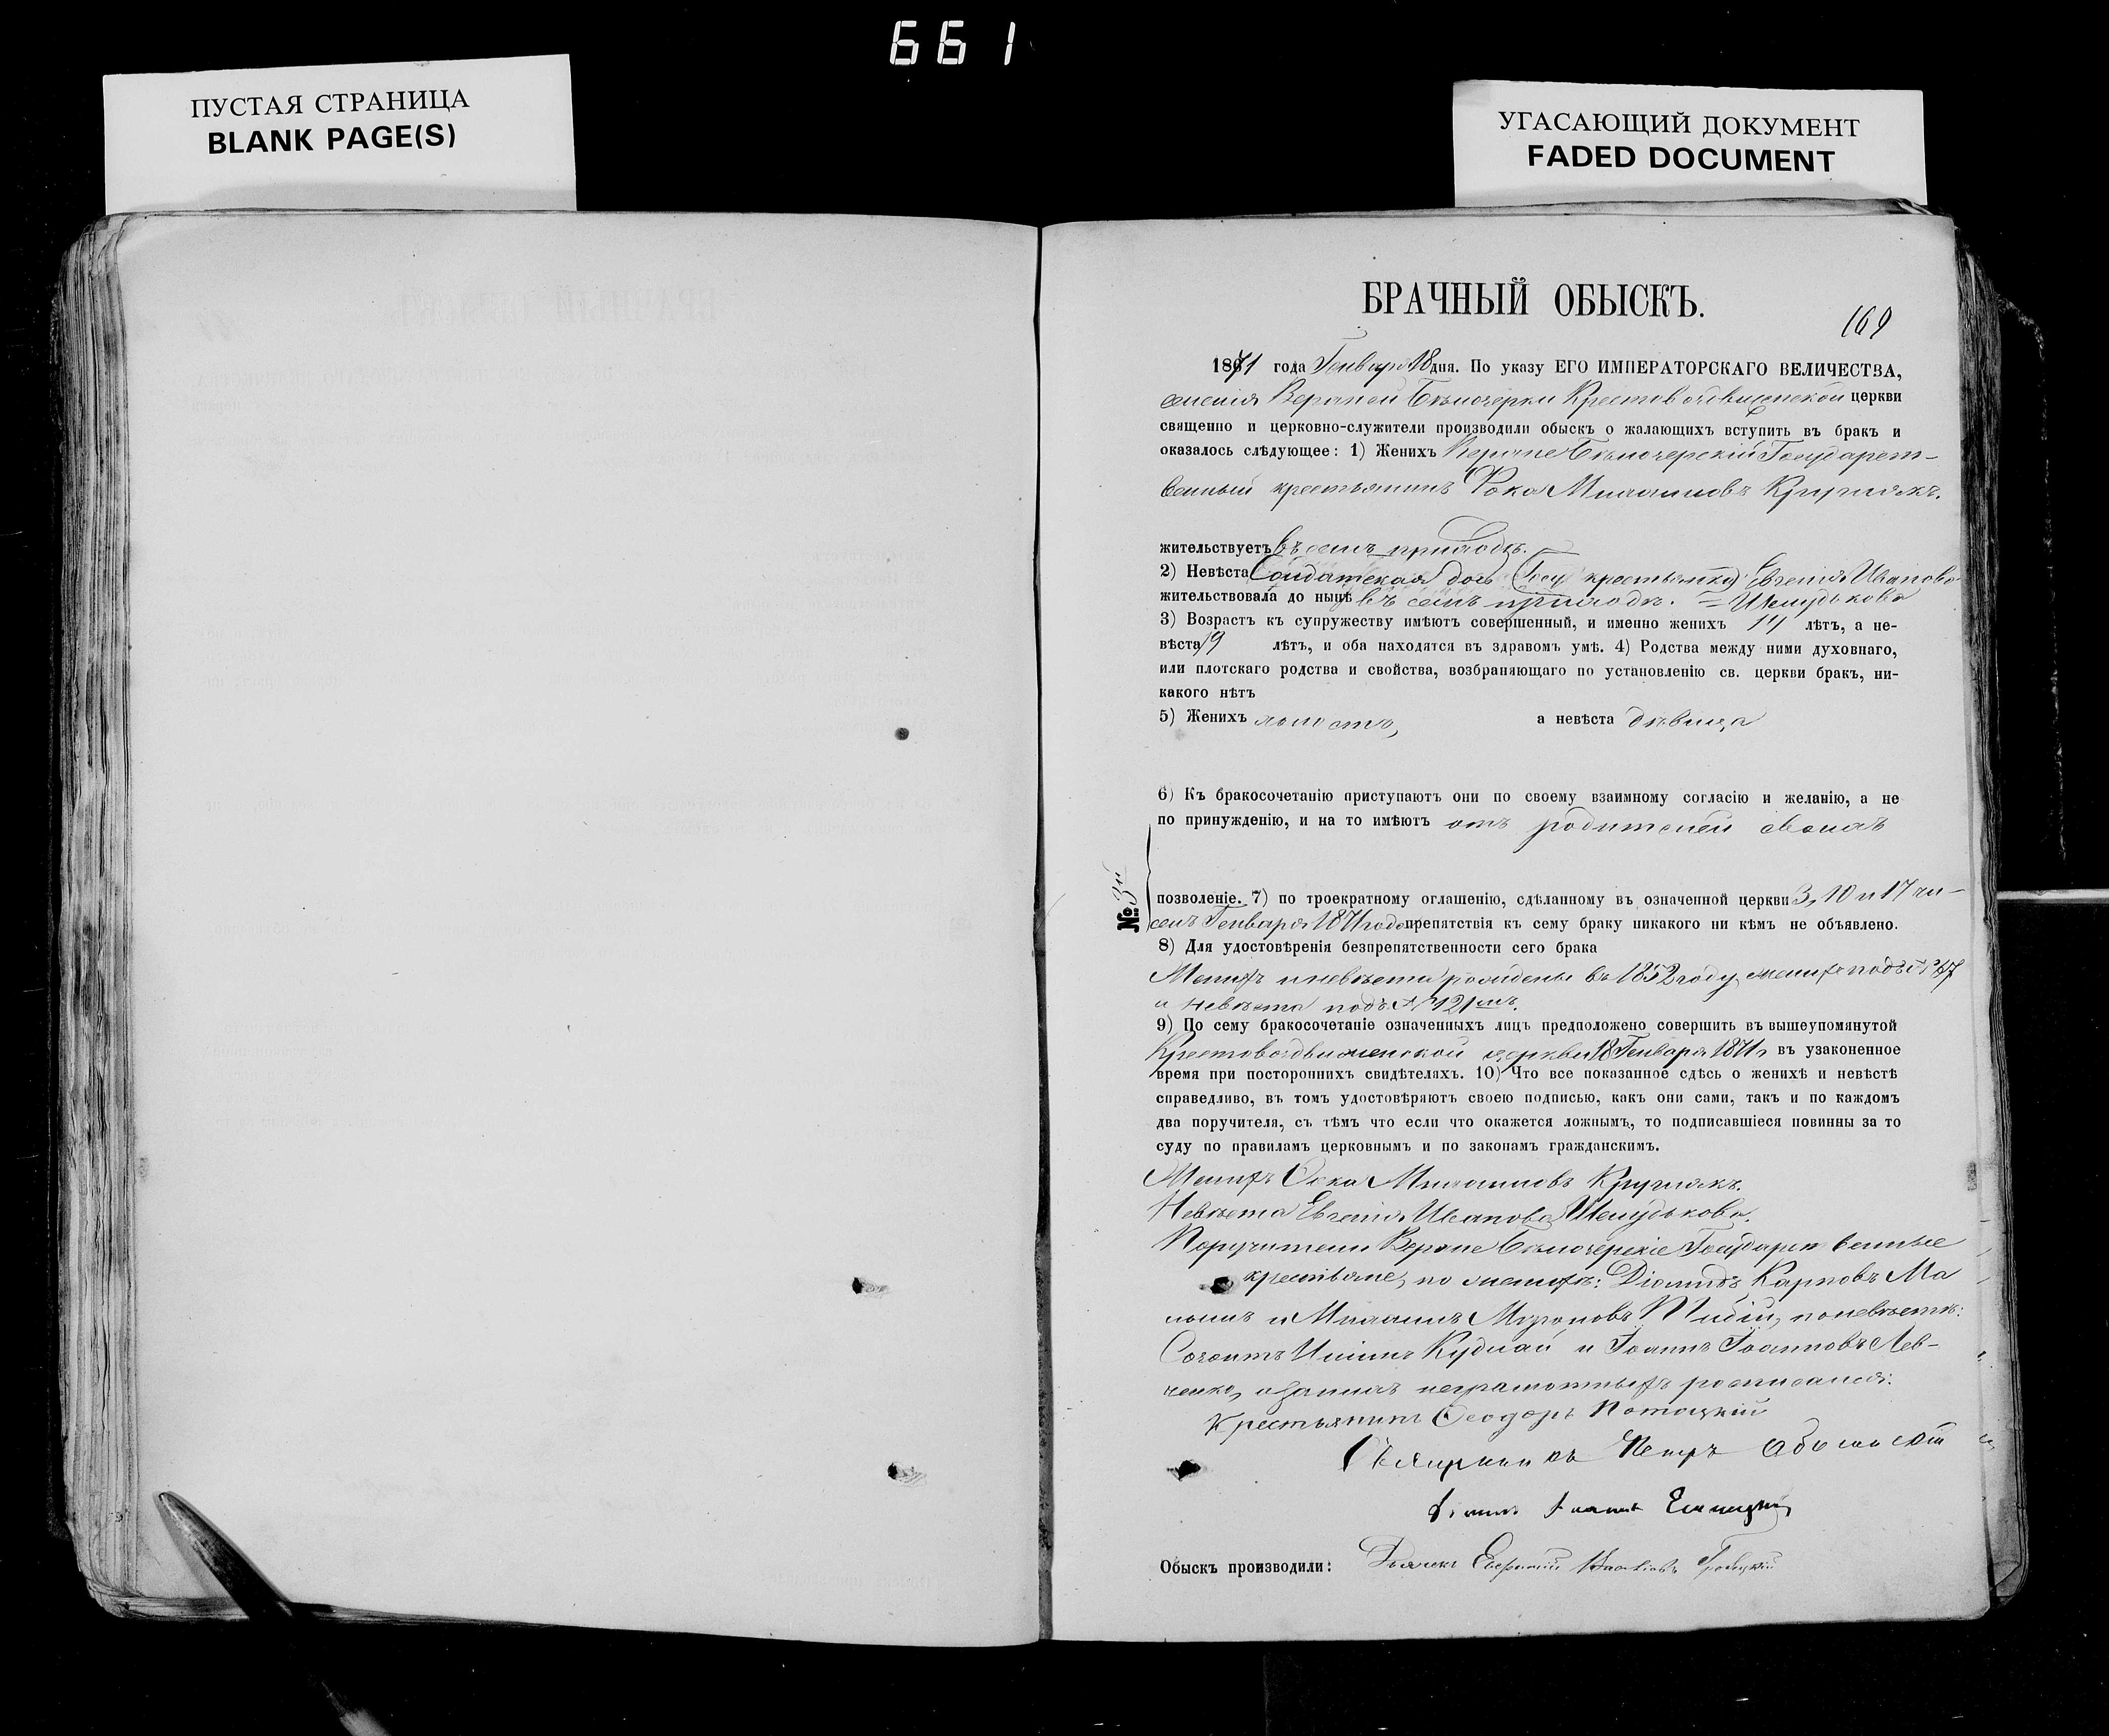 661
ПУСТАЯ СТРАНИЦА
BLANK PAGE(S)
УГАСАЮЩИЙ ДОКУМЕНТ
FADED DOCUMENT
БРАЧНЫЙ ОБЫСКЪ.
169
1871 года Генваря 18 дня. По указу ЕГО ИМПЕРАТОРСКАГО ВЕЛИЧЕСТВА,
Крестовоздвиженской церкви
священно и церковно-служители производили обыскъ о жалающихъ вступить въ бракъ и
оказалось слѣдующее: 1) Женихъ Государст-
венный крестьянинъ Фока Михаиловъ Кругликъ.
жительствуетъ въ семъ приходѣ.
2) Невѣста Солдатская дочь крестьянка Евгенія Иванова
жительствовала до нынѣ въ семъ приходѣ. =
3) Возрастъ къ супружеству имѣютъ совершенный, и именно женихъ лѣтъ, а не-
вѣста 19 лѣтъ, и оба находятся въ здравомъ умѣ. 4) Родства между ними духовнаго,
или плотскаго родства и свойства, возбраняющаго по установленію св. церкви бракъ, ни-
какого нѣтъ
5) Женихъ а невѣста дѣвица
6) Къ бракосочетанію приступаютъ они по своему взаимному согласію и желанію, а не
по принужденію, и на то имѣютъ отъ родителей своихъ
№ 3й
позволеніе. 7) по троекратному оглашенію, сдѣланному въ означенной церкви 3, 10 и 17 чи-
селъ Генваря 1871 года препятствія къ сему браку никакого ни кѣмъ не объявлено.
8) Для удостовѣренія безпрепятственности сего брака
Женихъ и невѣста рождены въ 1852 году, женихъ подъ № 67
и невѣста подъ № 121мъ.
9) По сему бракосочетаніе означенныхъ лицъ предположено совершить въ вышеупомянутой
Крестовоздвиженской церкви 18 Генваря 1871 въ узаконенное
время при постороннихъ свидѣтеляхъ. 10) Что все показанное сдѣсь о женихѣ и невѣстѣ
справедливо, въ томъ удостовѣряютъ своею подписью, какъ они сами, такъ и по каждомъ
два поручителя, съ тѣмъ что если что окажется ложнымъ, то подписавшіеся повинны за то
суду по правиламъ церковнымъ и по законамъ гражданскимъ.
Женихъ Фока Михаиловъ Кругликъ.
Невѣста Евгенія Иванова
Поручители Государственные
крестьяне, по женихѣ: Діомидъ Карповъ Ма
и Михаилъ Мироновъ по невѣстѣ:
и Іоаннъ Іоанновъ Лев-
ченко, а за нихъ неграмотныхъ росписался:
Крестьянинъ Ѳеодоръ Потоцкій
Священникъ Петръ
Обыскъ производили: Дьячекъ